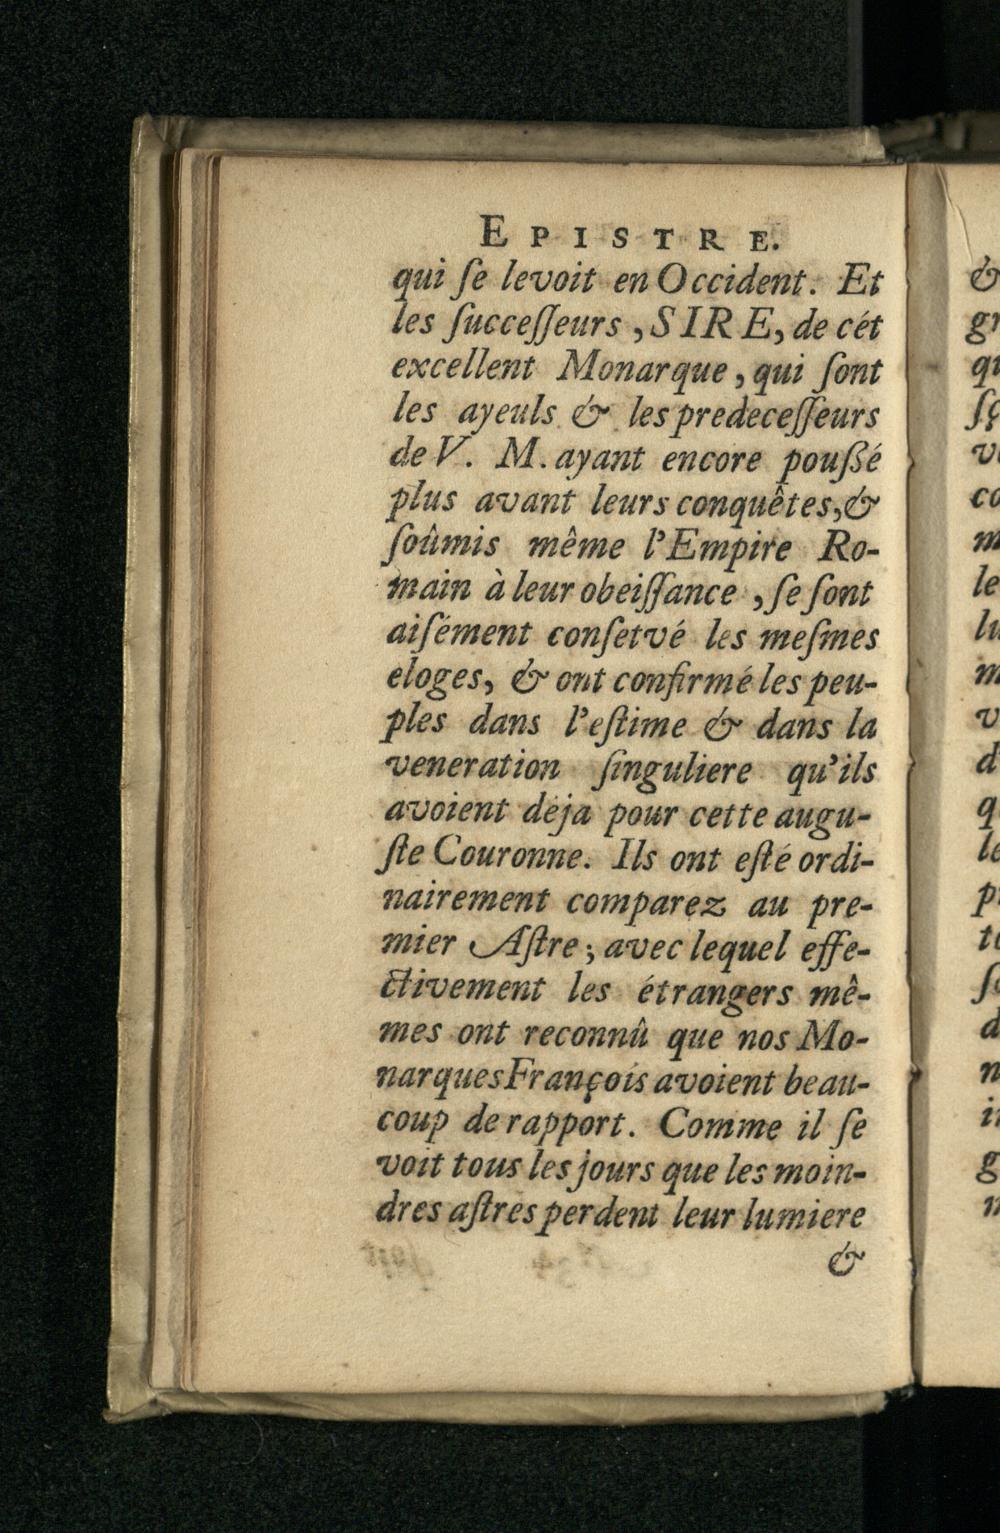 EPISTRE.
qui ſe levoit en Occident. Et
les ſucceſſeurs, SIRE, de cét
excellent Monarque, qui ſont
les ayeuls & les predeceſſeurs
de V. M. ayant encore pouſsé
plus avant leurs conquêtes, &
ſoûmis même l'Empire Ro-
main à leur obeiſſance, ſe ſont
aiſément conſetvé les meſmes
eloges, & ont confirmé les peu-
ples dans l'eſtime & dans la
veneration ſinguliere qu'ils
avoient deja pour cette augu-
ſte Couronne. Ils ont eſté ordi-
nairement comparez au pre-
mier Aſtre; avec lequel effe-
ctivement les étrangers mê-
mes ont reconnû que nos Mo-
narques François avoient beau-
coup de rapport. Comme il ſe
voit tous les jours que les moin-
dres aſtres perdent leur lumiere
&
&
gr
qu
ſç
v
co
m
le
lu
m
v
d
q
le
p
t
ſ
d
n
i
g